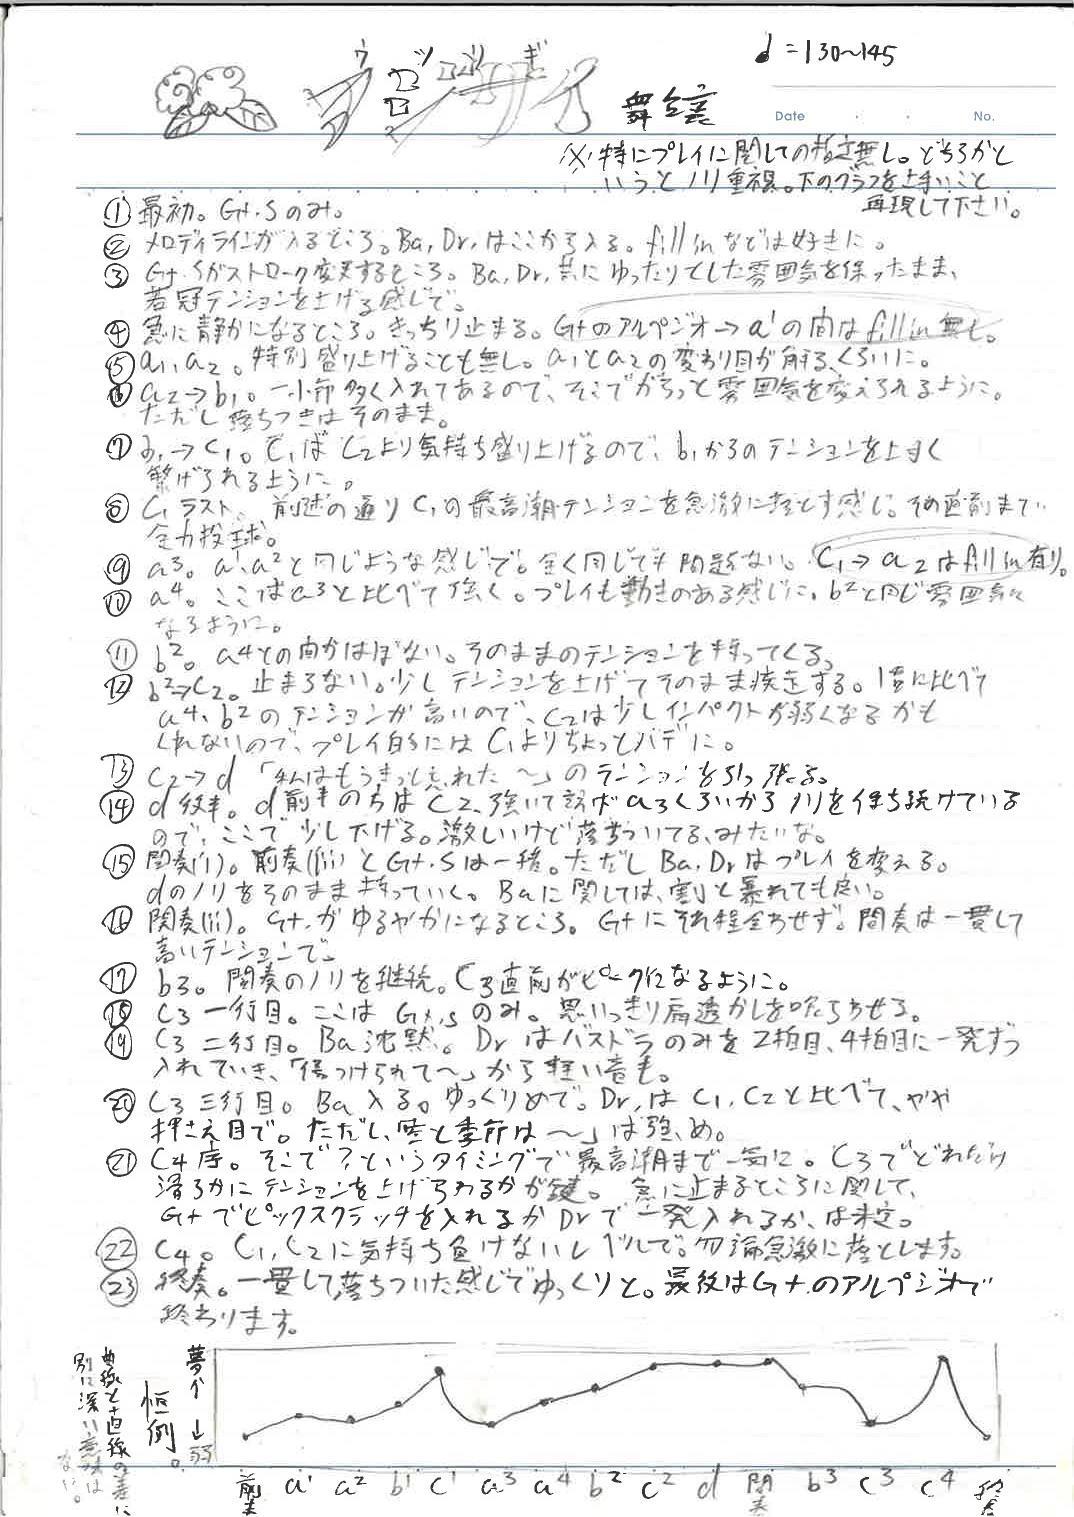 ♩=130~145
ウ ツ リ ギ
舞台裏
Date . . No.
※特にプレイに関しての指定無し。どちらかと
いうとノリ重視。下のグラフを上手いこと
再現して下さい。
① 最初。Gt.Sのみ。
② メロディラインが入るところ。Ba, Dr,はここから入る。fill inなどは好きに。
③ Gt.Sがストローク変更するところ。Ba, Dr, 共にゆったりとした雰囲気を保ったまま、
若冠テンションを上げる感じで。
④ 急に静かになるところ。きっちり止まる。Gtのアルペジオ→a¹の間はfill in無し。
⑤ a1, a2。特別盛り上げることも無し。a1とa2の変わり目が解る、くらいに。
⑥ a2→b1。一小節多く入れてあるので、そこでがらっと雰囲気を変えられるように。
ただし落ちつきはそのまま。
⑦ b1→C1。C1はC2より気持ち盛り上げるので、b1からのテンションを上手く
繋げられるように。
⑧ C1ラスト、前述の通りC1の最高潮テンションを急激に落とす感じ。その直前まで
全力投球。
⑨ a3。a¹、a²と同じような感じで。全く同じでも問題ない。C1→a2はfill in有り。
⑩ a4。ここはa3と比べて強く。プレイも動きのある感じに。b²と同じ雰囲気に
なるように。
⑪ b²。a4との間かはぼない。そのままのテンションを持ってくる。
⑫ b²→C2。止まらない。少しテンションを上げてそのまま疾走する。1番に比べて
a4、b²のテンションが高いので、C2は少しインパクトが弱くなるかも
しれないので、プレイ的にはC1よりちょっとハデに。
⑬ C2→d 「私はもうきっと忘れた~」のテンションを引っ張る。
⑭ d後半。d前半の方はC2、強いて言ばa3くらいからノリを保ち続けている
ので、ここで少し下げる。激しいけど落ちついてる、みたいな。
⑮ 間奏(i)。前奏(iii)とGt.Sは一緒。ただしBa, Drはプレイを変える。
dのノリをそのまま持っていく。Baに関しては、割と暴れても良い。
⑯ 間奏(ii)。Gt.がゆるやかになるところ。Gtにそれ程合わせず。間奏は一貫して
高いテンションで。
⑰ b3。間奏のノリを継続。C3直前がピークになるように。
⑱ C3一行目。ここはGt.Sのみ。思いっきり肩透かしを喰らわせる。
⑲ C3二行目。Ba沈黙。Drはバスドラのみを2拍目、4拍目に一発ずつ
入れていき、「傷つけられて~」から軽い音も。
⑳ C3三行目。Ba入る。ゆっくりめで。Dr,はC1, C2と比べて、やや
押さえ目で。ただし、~」は強め。
㉑ C4序。そこで?というタイミングで最高潮まで一気に。C3でどれだけ
滑らかにテンションを上げられるかが鍵。急に止まるところに関して、
Gtでピックスクラッチを入れるかDrで一発入れるか、は未定。
㉒ C4。C1, C2に気持ち負けないレベルで。勿論急激に落とします。
㉓ 終奏。一貫して落ちついた感じでゆっくりと。最後はGt.のアルペジオで
終わります。
曲線と直線の差に
別に深い意味は
ない。
恒例。
↓
弱
前奏 a¹ a² b¹ c¹ a³ a⁴ b² c² d 間奏 b³ c³ c⁴ 終奏